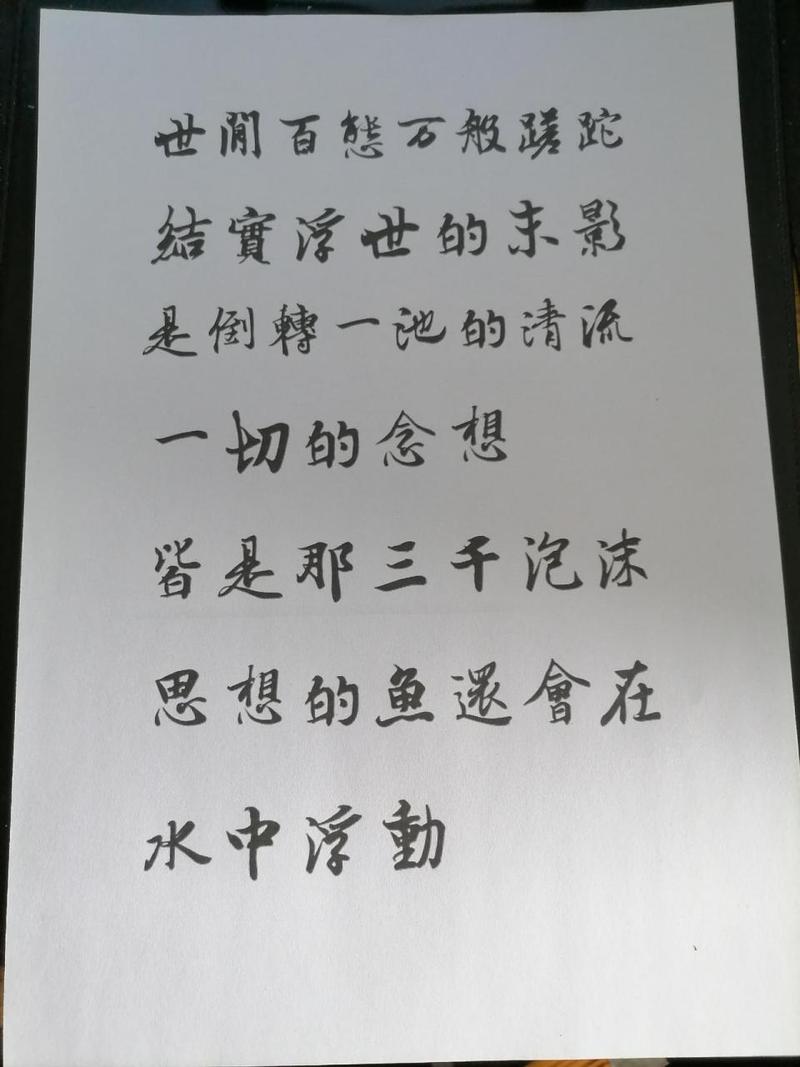 世閒百態万般蹉跎
結實浮世的末影
是倒轉一池的清流
一切的念想
皆是那三千泡沫
思想的魚還會在
水中浮動